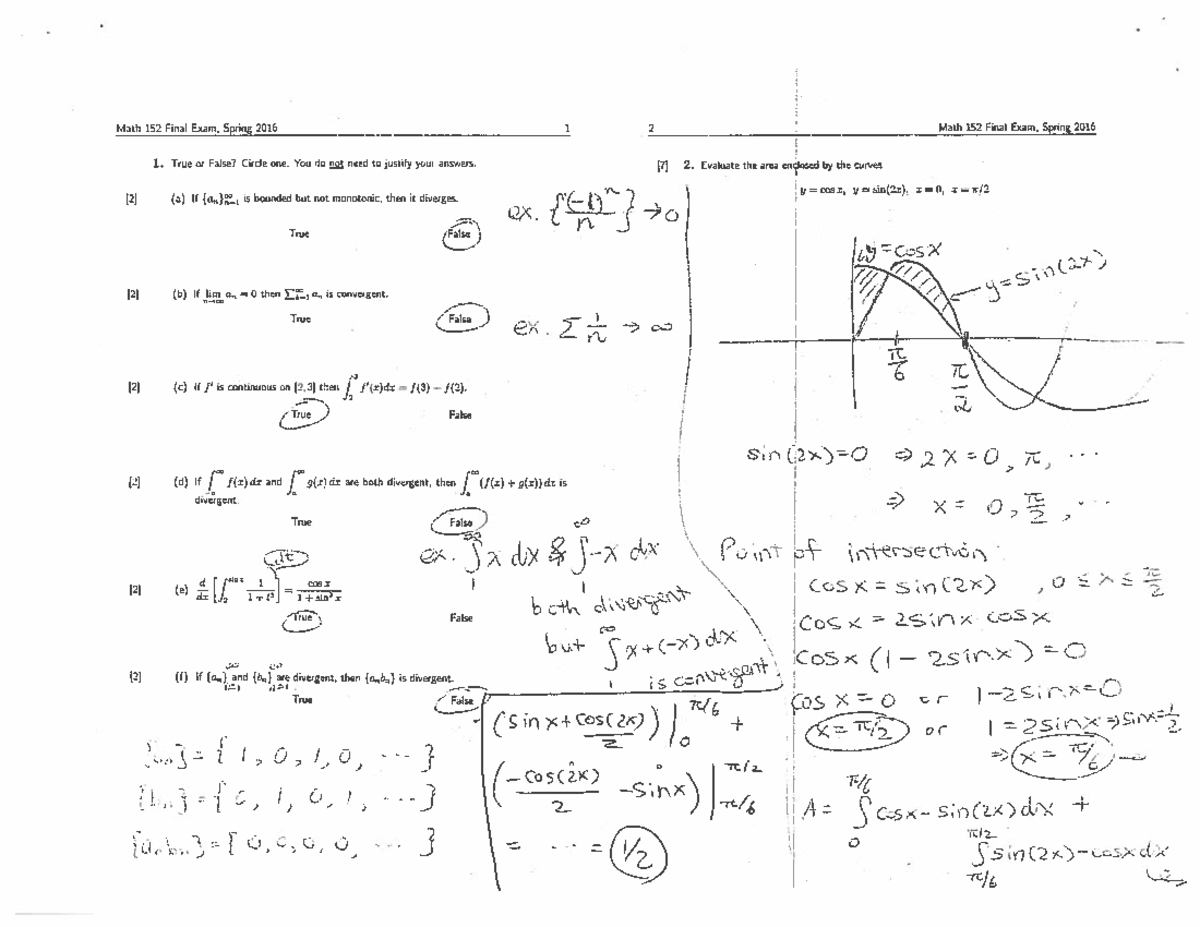 Math 152 Final Exam, Spring 2016 1
1. True or False? Circle one. You do not need to justify your answers.
[2] (a) If {a_n}_{n=1}^∞ is bounded but not monotonic, then it diverges.
True False
ex. {(-1)^n/n} → 0
[2] (b) If lim_{n→∞} a_n = 0 then ∑_{n=1}^∞ a_n is convergent.
True False
ex. ∑ 1/n → ∞
[2] (c) If f' is continuous on [2,3] then ∫_2^3 f'(x)dx = f(3) − f(2).
True False
[2] (d) If ∫_a^∞ f(x) dx and ∫_a^∞ g(x) dx are both divergent, then ∫_a^∞ (f(x) + g(x)) dx is
divergent.
True False
ex. ∫_1^∞ x dx & ∫_1^∞ -x dx
both divergent
but ∫_1^∞ x+(-x) dx
is convergent
dt
[2] (e) d/dx [∫_2^{sin x} 1/(1 + t²)] = cos x/(1 + sin² x)
True False
[2] (f) If {a_n}_{n=1}^∞ and {b_n}_{n=1}^∞ are divergent, then {a_n b_n} is divergent.
True False
{a_n} = { 1, 0, 1, 0, ... }
{b_n} = { 0, 1, 0, 1, ... }
{a_n b_n} = { 0, 0, 0, 0, ... }
(sin x + cos(2x)/2) |_0^{π/6} +
(-cos(2x)/2 - sin x) |_{π/6}^{π/2}
= ... = 1/2
2 Math 152 Final Exam, Spring 2016
[7] 2. Evaluate the area enclosed by the curves
y = cos x, y = sin(2x), x = 0, x = π/2
y = cos x
y = sin(2x)
π/6
π/2
sin(2x)=0 ⇒ 2x = 0, π, ...
⇒ x = 0, π/2, ...
Point of intersection:
cos x = sin(2x) , 0 ≤ x ≤ π/2
cos x = 2 sin x cos x
cos x (1 - 2 sin x) = 0
cos x = 0 or 1 - 2 sin x = 0
x = π/2 or 1 = 2 sin x ⇒ sin x = 1/2
⇒ x = π/6
A = ∫_0^{π/6} cos x - sin(2x) dx +
∫_{π/6}^{π/2} sin(2x) - cos x dx